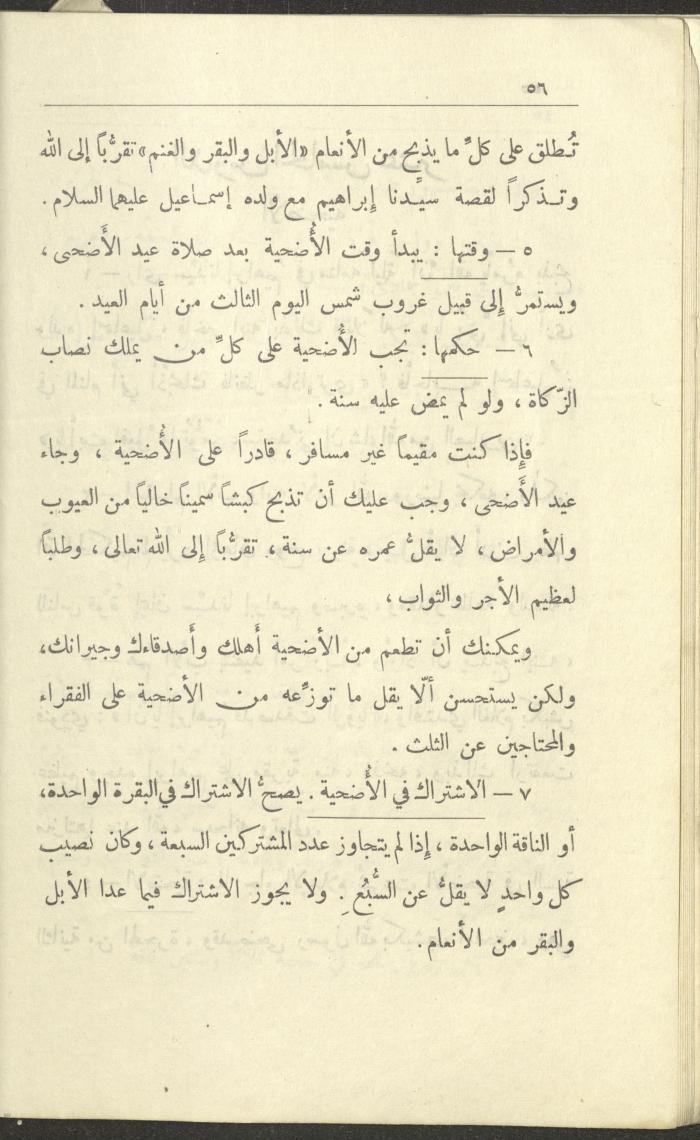 ٥٦
تُطلق على كلِّ ما يذبح من الأنعام «الأبل والبقر والغنم» تقرُّباً إلى الله
وتذكراً لقصة سيِّدنا إبراهيم مع ولده إسماعيل عليهما السلام .
٥ – وقتها : يبدأ وقت الأُضحية بعد صلاة عيد الأَضحى ،
ويستمرُّ إلى قبيل غروب شمس اليوم الثالث من أيام العيد .
٦ – حكمها : تجب الأُضحية على كلِّ من يملك نصاب
الزّكاة ، ولو لم يمض عليه سنة .
فإِذا كنت مقيماً غير مسافر ، قادراً على الأُضحية ، وجاء
عيد الأَضحى ، وجب عليك أن تذبح كبشاً سميناً خالياً من العيوب
والأمراض ، لا يقلُّ عمره عن سنة ، تقرُّباً إلى الله تعالى ، وطلباً
لعظيم الأجر والثواب ،
ويمكنك أن تطعم من الأضحية أَهلك وأَصدقاءك وجيرانك ،
ولكن يستحسن ألّا يقل ما توزِّعه من الأضحية على الفقراء
والمحتاجين عن الثلث .
٧ – الاشتراك في الأُضحية . يصحُّ الاشتراك في البقرة الواحدة ،
أو الناقة الواحدة ، إِذا لم يتجاوز عدد المشتركين السبعة ، وكان نصيب
كل واحدٍ لا يقلُّ عن السُّبُعِ . ولا يجوز الاشتراك فيما عدا الأبل
والبقر من الأنعام .